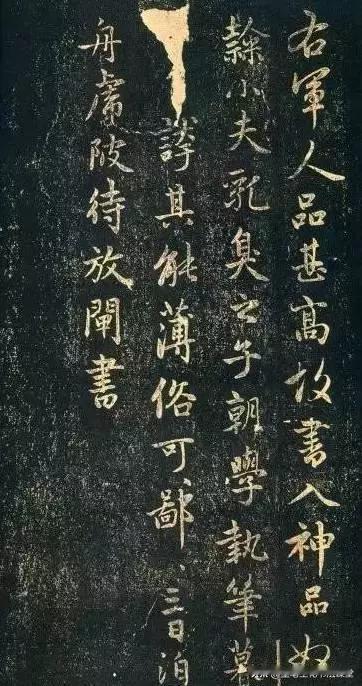 右軍人品甚高故書入神品奴
隸小夫乳臭之子朝學執筆暮
誇其能薄俗可鄙〻三日泊
舟虎陂待放閘書